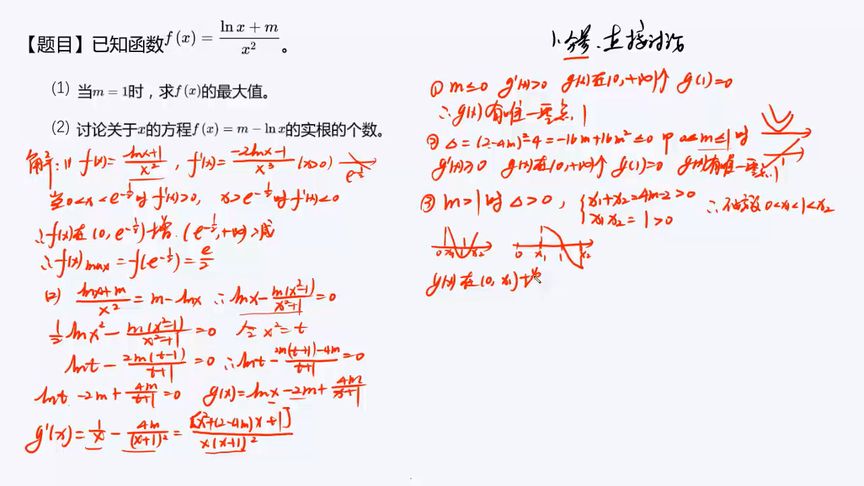 【题目】已知函数f(x)=\frac{\ln x+m}{x^2}。
(1) 当m=1时，求f(x)的最大值。
(2) 讨论关于x的方程f(x)=m-\ln x的实根的个数。
解：(1) f(x)=\frac{\ln x+1}{x^2}，f'(x)=\frac{-2\ln x-1}{x^3} (x>0) e^{-\frac{1}{2}}
当0<x<e^{-\frac{1}{2}}时f'(x)>0，x>e^{-\frac{1}{2}}时f'(x)<0
∴f(x)在(0,e^{-\frac{1}{2}})增.(e^{-\frac{1}{2}},+∞)减
∴f(x)max=f(e^{-\frac{1}{2}})=\frac{e}{2}
(2) \frac{\ln x+m}{x^2}=m-\ln x ∴\ln x-\frac{m(x^2-1)}{x^2+1}=0
\frac{1}{2}\ln x^2-\frac{m(x^2-1)}{x^2+1}=0 令x^2=t
\ln t-\frac{2m(t-1)}{t+1}=0 ∴\ln t-\frac{2m(t+1)-4m}{t+1}=0
\ln t-2m+\frac{4m}{t+1}=0 g(x)=\ln x-2m+\frac{4m}{x+1}
g'(x)=\frac{1}{x}-\frac{4m}{(x+1)^2}=\frac{[x^2+(2-4m)x+1]}{x(x+1)^2}
1.分号、直接讨论
① m≤0 g'(x)>0 g(x)在(0,+∞)↑ g(1)=0
∴g(x)有唯一零点1
② Δ=(2-4m)^2-4=-16m+16m^2≤0 即0≤m≤1时
g'(x)≥0 g(x)在(0,+∞)↑ g(1)=0 g(x)有唯一零点1
③ m>1时Δ>0，{x1+x2=4m-2>0 ∴不妨设0<x1<1<x2
x1x2=1>0
0 x1 x2 0 x1 1 x2
g(x)在(0,x1)增